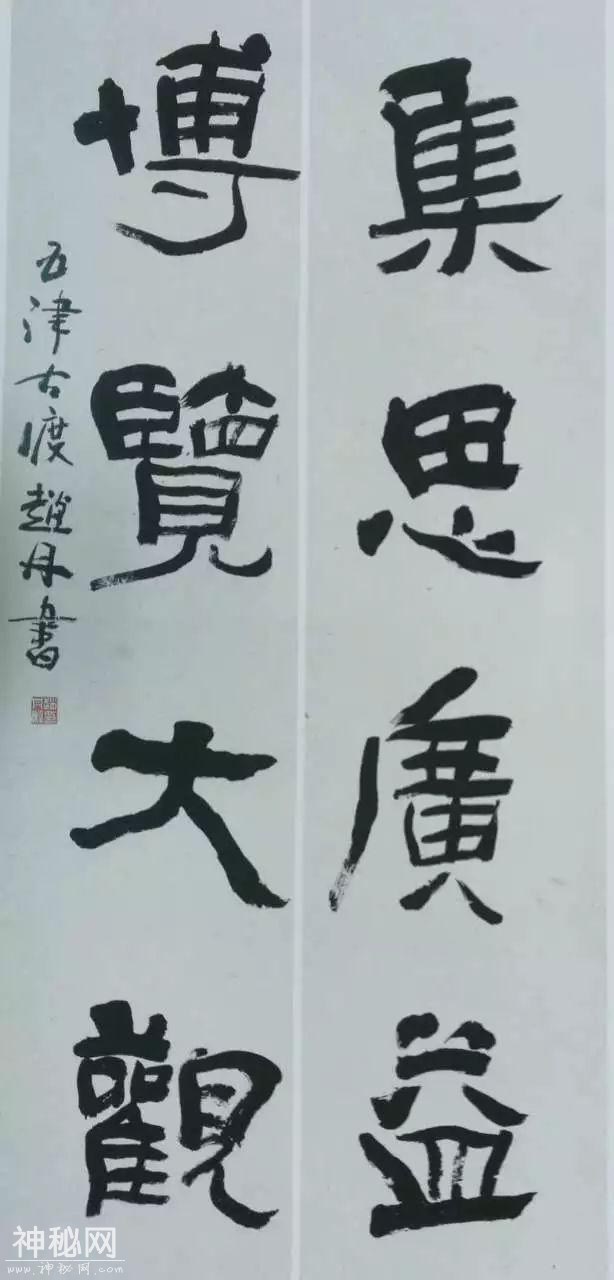 集思廣益
博覽大觀
五津古渡趙丹書
神秘网
www.神秘网.com